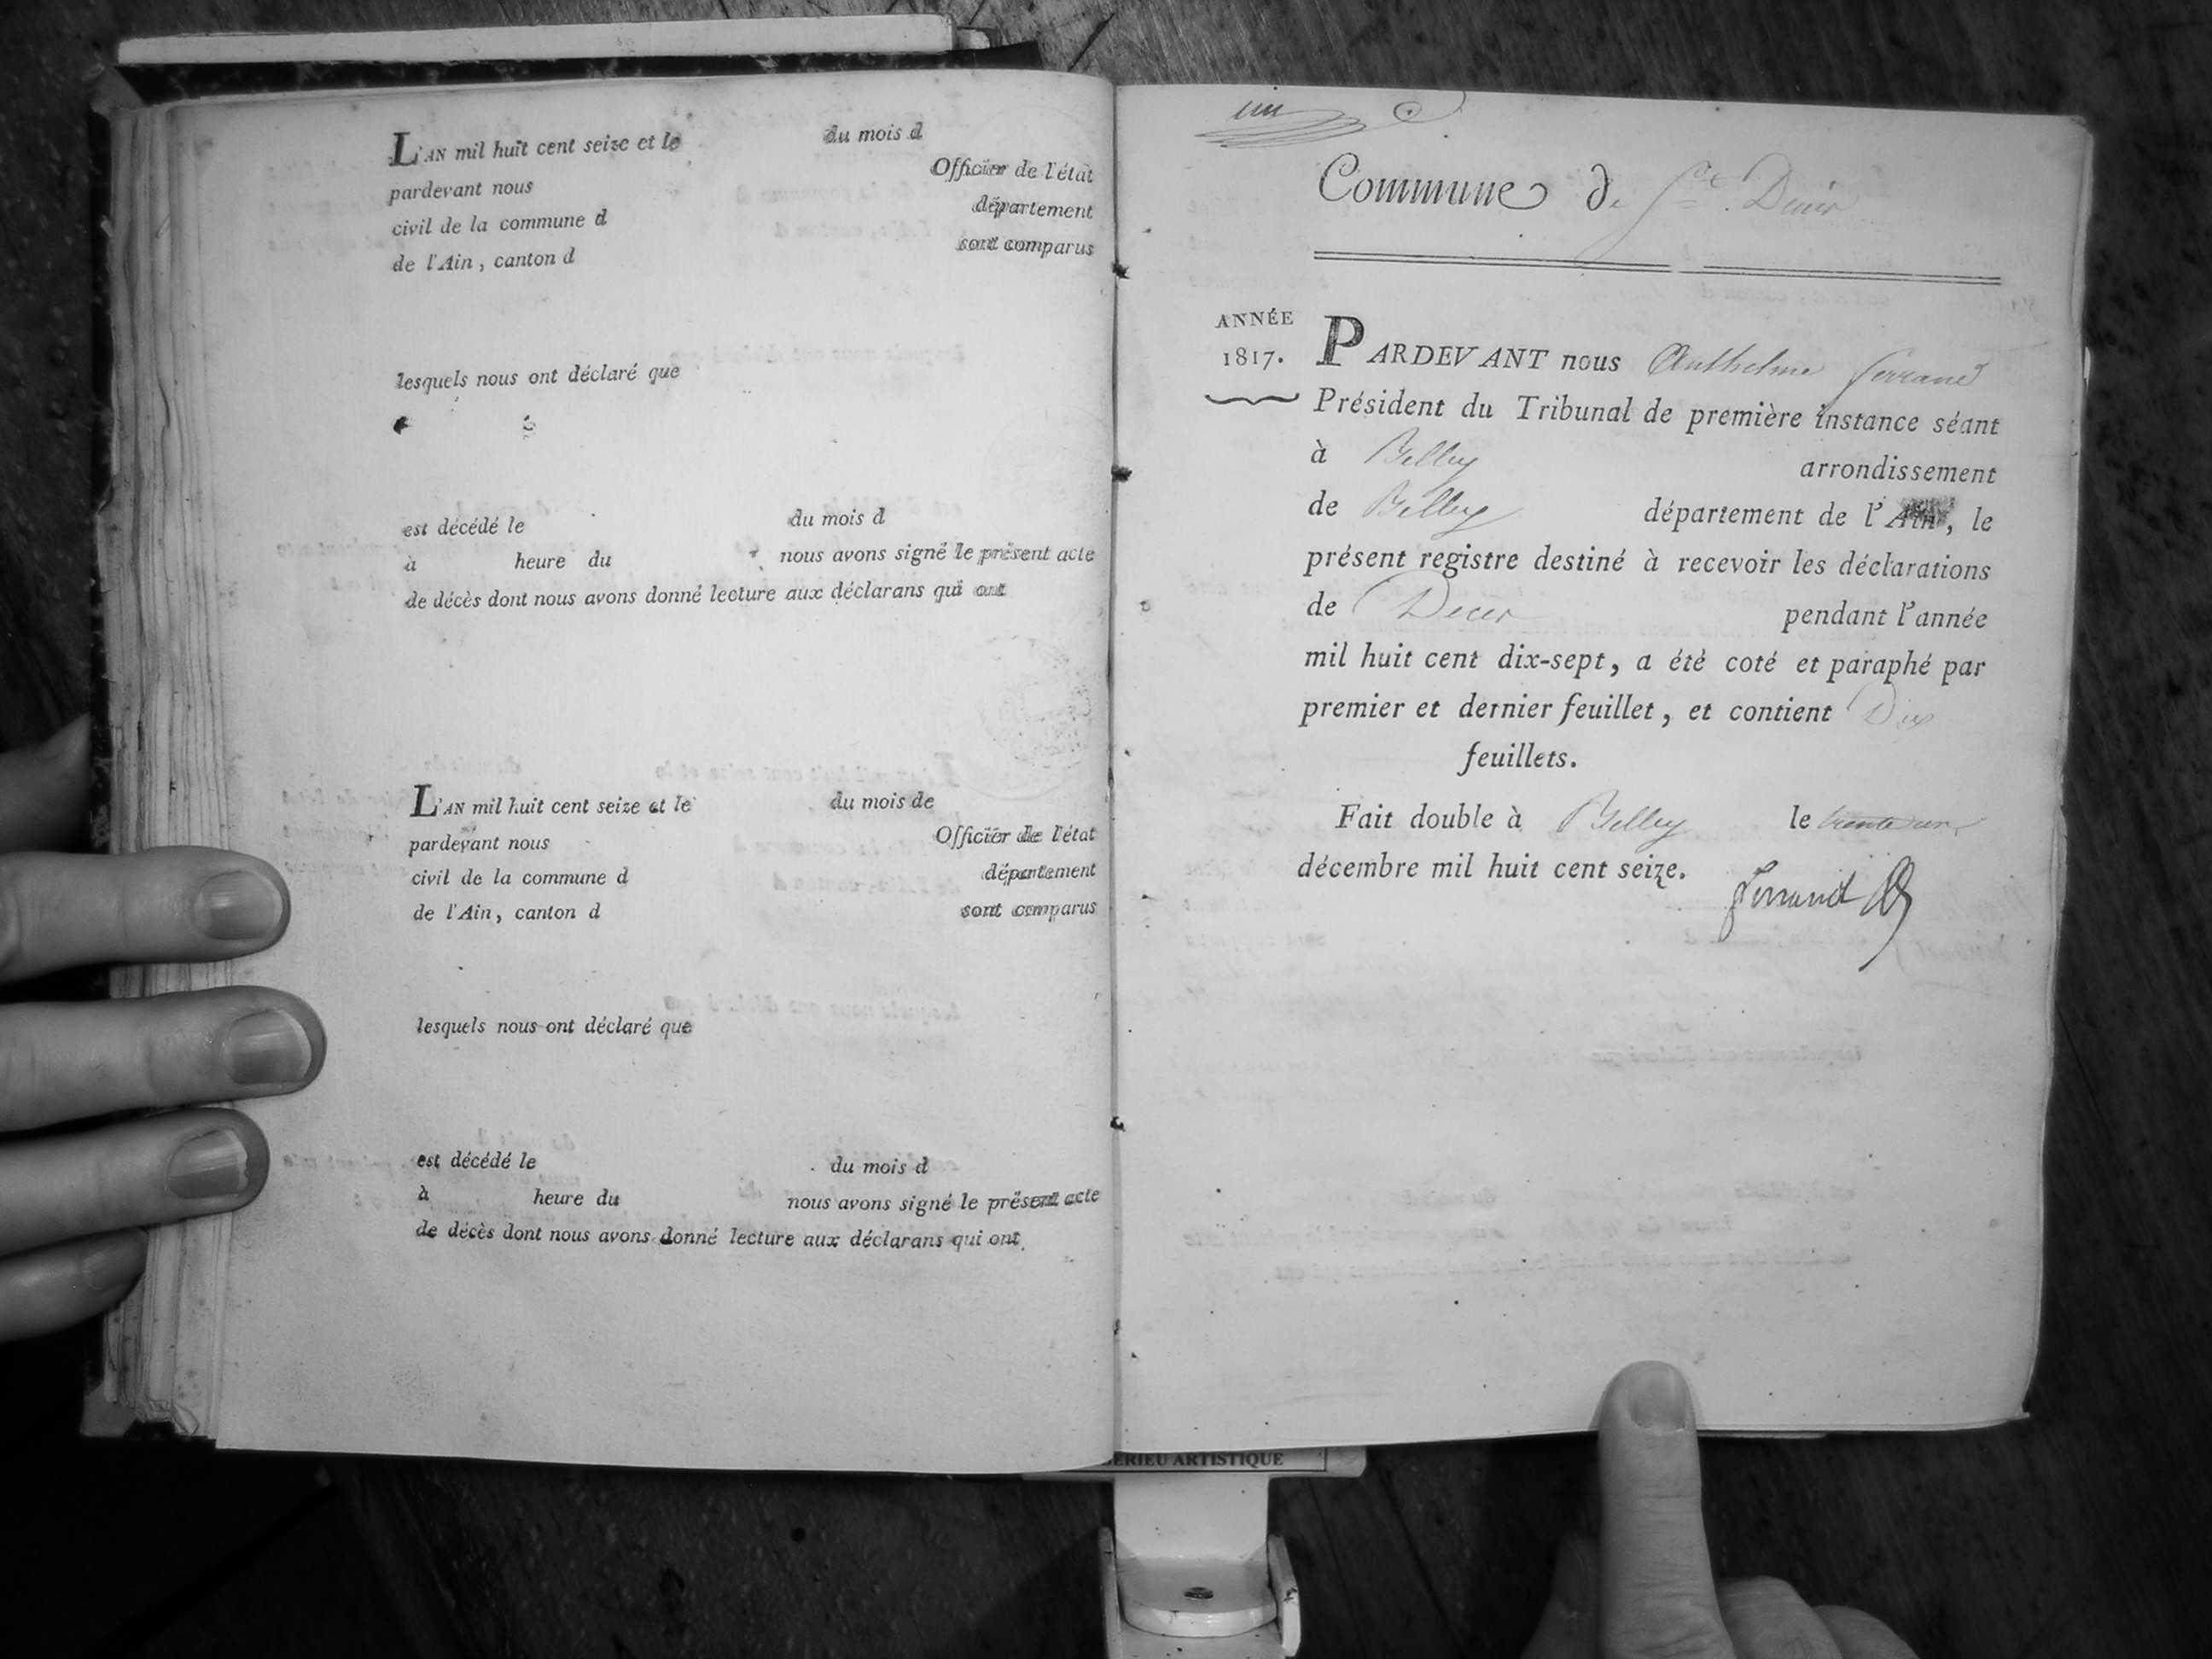 L'AN mil huit cent seize et le du mois d
pardevant nous Officier de l'état
civil de la commune d département
de l'Ain, canton d sont comparus
lesquels nous ont déclaré que
est décédé le du mois d
à heure du nous avons signé le présent acte
de décès dont nous avons donné lecture aux déclarans qui ont
L'AN mil huit cent seize et le du mois de
pardevant nous Officier de l'état
civil de la commune d département
de l'Ain, canton d sont comparus
lesquels nous ont déclaré que
est décédé le du mois d
à heure du nous avons signé le présent acte
de décès dont nous avons donné lecture aux déclarans qui ont
un
Commune de St. Denis
ANNÉE
1817.
PARDEVANT nous Anthelme ferrand
Président du Tribunal de première instance séant
à Belley arrondissement
de Belley département de l'Ain, le
présent registre destiné à recevoir les déclarations
de Deces pendant l'année
mil huit cent dix-sept, a été coté et paraphé par
premier et dernier feuillet, et contient Dix
feuillets.
Fait double à Belley le trente un
décembre mil huit cent seize.
ferrand
ERIEU ARTISTIQUE